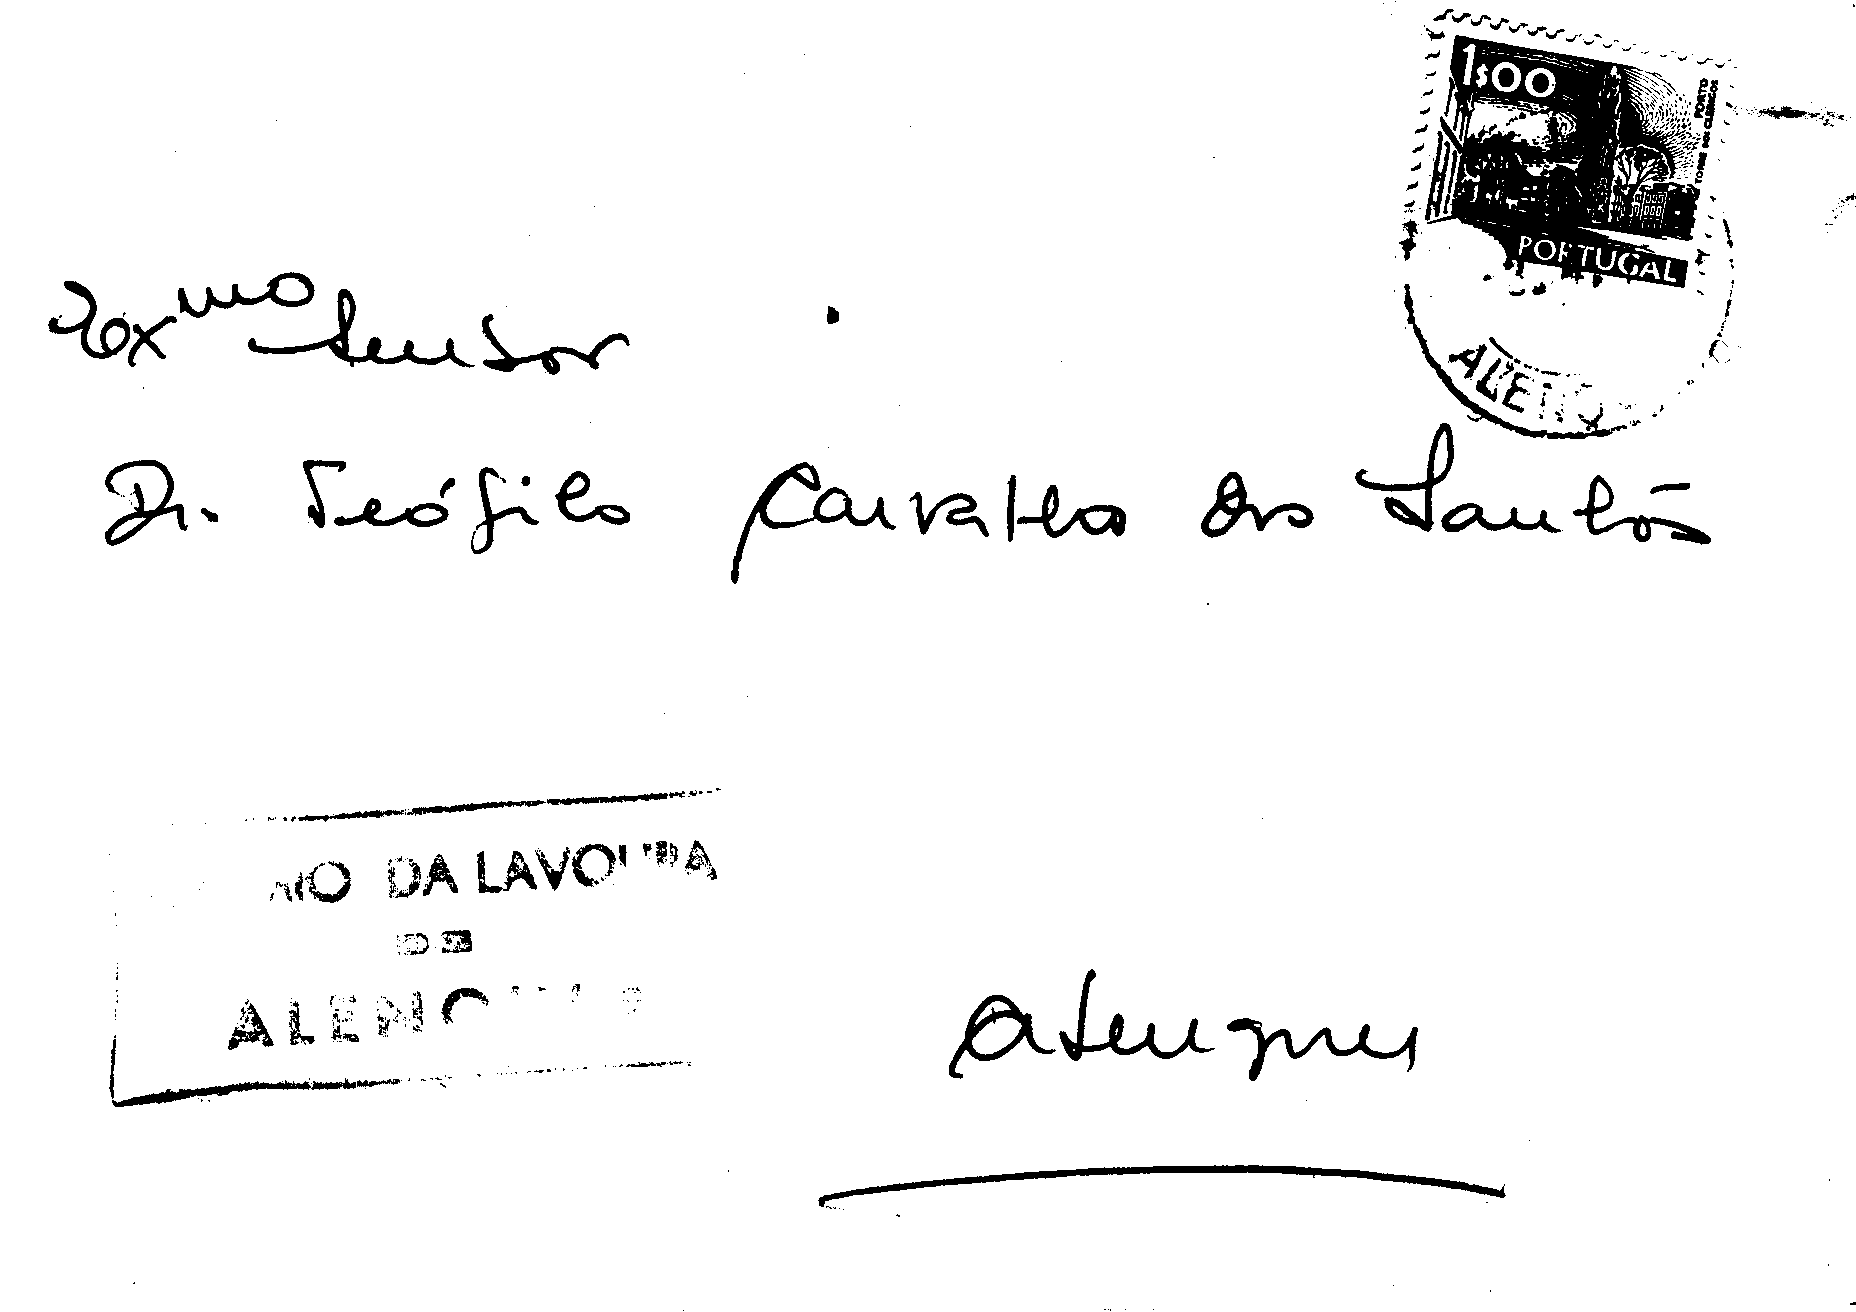 1$00
PORTO
TORRE DOS CLÉRIGOS
PORTUGAL
Exmo Senhor
Dr. Teófilo Carvalho dos Santos
DA LAVOURA
DE
ALENQUER
Alenquer